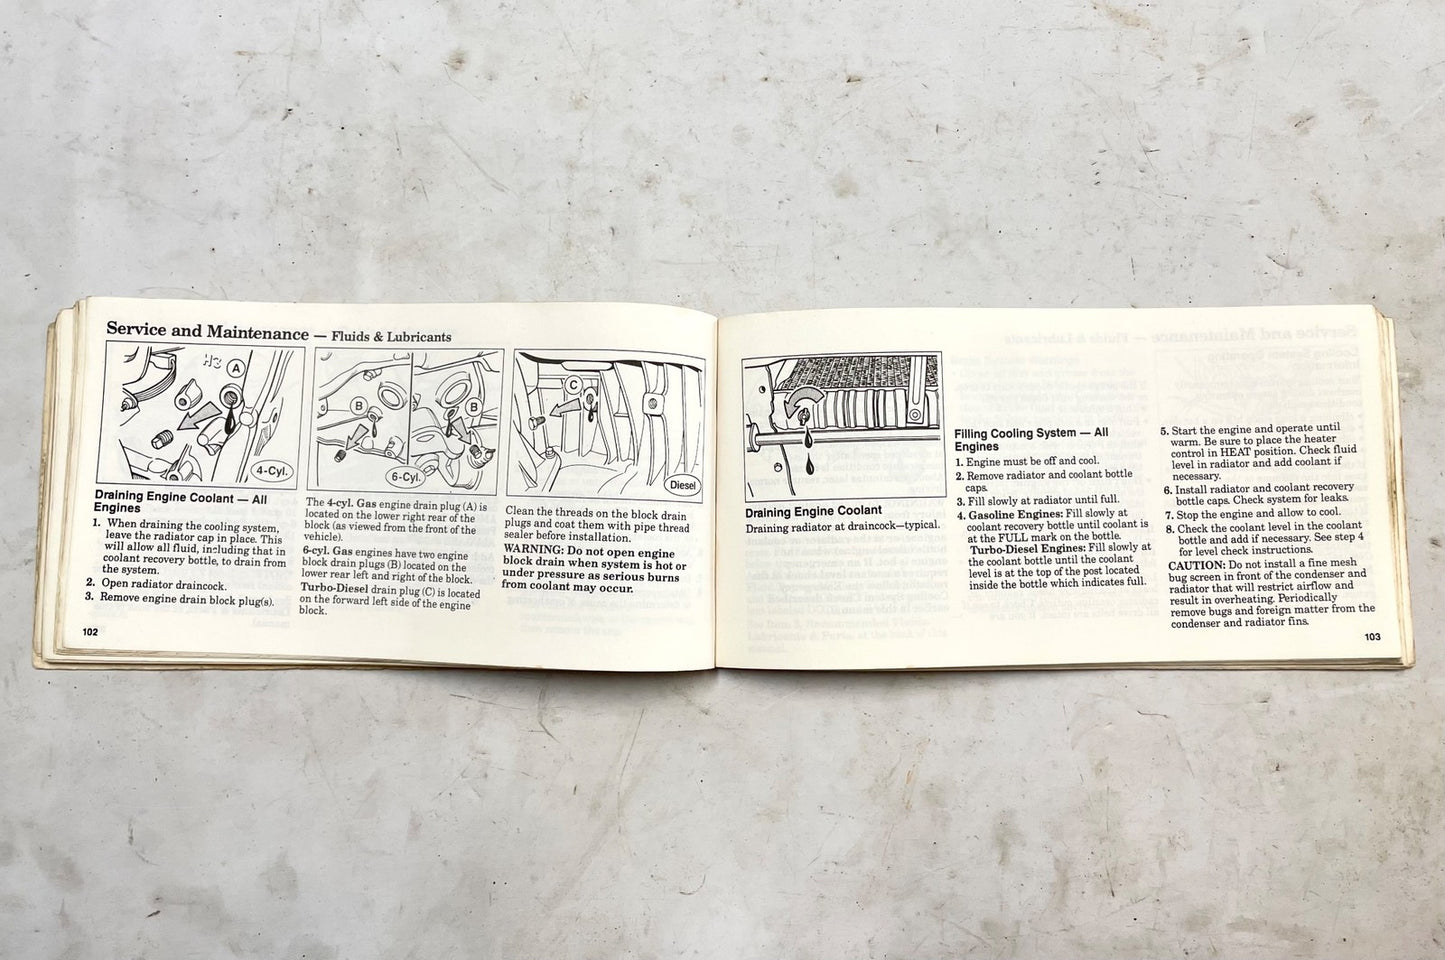 Service and Maintenance — Fluids & Lubricants
H3
A
4-Cyl.
B
B
6-Cyl.
C
Diesel
Draining Engine Coolant — All
Engines
1. When draining the cooling system,
leave the radiator cap in place. This
will allow all fluid, including that in
coolant recovery bottle, to drain from
the system.
2. Open radiator draincock.
3. Remove engine drain block plug(s).
102
The 4-cyl. Gas engine drain plug (A) is
located on the lower right rear of the
block (as viewed from the front of the
vehicle).
6-cyl. Gas engines have two engine
block drain plugs (B) located on the
lower rear left and right of the block.
Turbo-Diesel drain plug (C) is located
on the forward left side of the engine
block.
Clean the threads on the block drain
plugs and coat them with pipe thread
sealer before installation.
WARNING: Do not open engine
block drain when system is hot or
under pressure as serious burns
from coolant may occur.
Draining Engine Coolant
Draining radiator at draincock—typical.
Filling Cooling System — All
Engines
1. Engine must be off and cool.
2. Remove radiator and coolant bottle
caps.
3. Fill slowly at radiator until full.
4. Gasoline Engines: Fill slowly at
coolant recovery bottle until coolant is
at the FULL mark on the bottle.
Turbo-Diesel Engines: Fill slowly at
the coolant bottle until the coolant
level is at the top of the post located
inside the bottle which indicates full.
5. Start the engine and operate until
warm. Be sure to place the heater
control in HEAT position. Check fluid
level in radiator and add coolant if
necessary.
6. Install radiator and coolant recovery
bottle caps. Check system for leaks.
7. Stop the engine and allow to cool.
8. Check the coolant level in the coolant
bottle and add if necessary. See step 4
for level check instructions.
CAUTION: Do not install a fine mesh
bug screen in front of the condenser and
radiator that will restrict airflow and
result in overheating. Periodically
remove bugs and foreign matter from the
condenser and radiator fins.
103